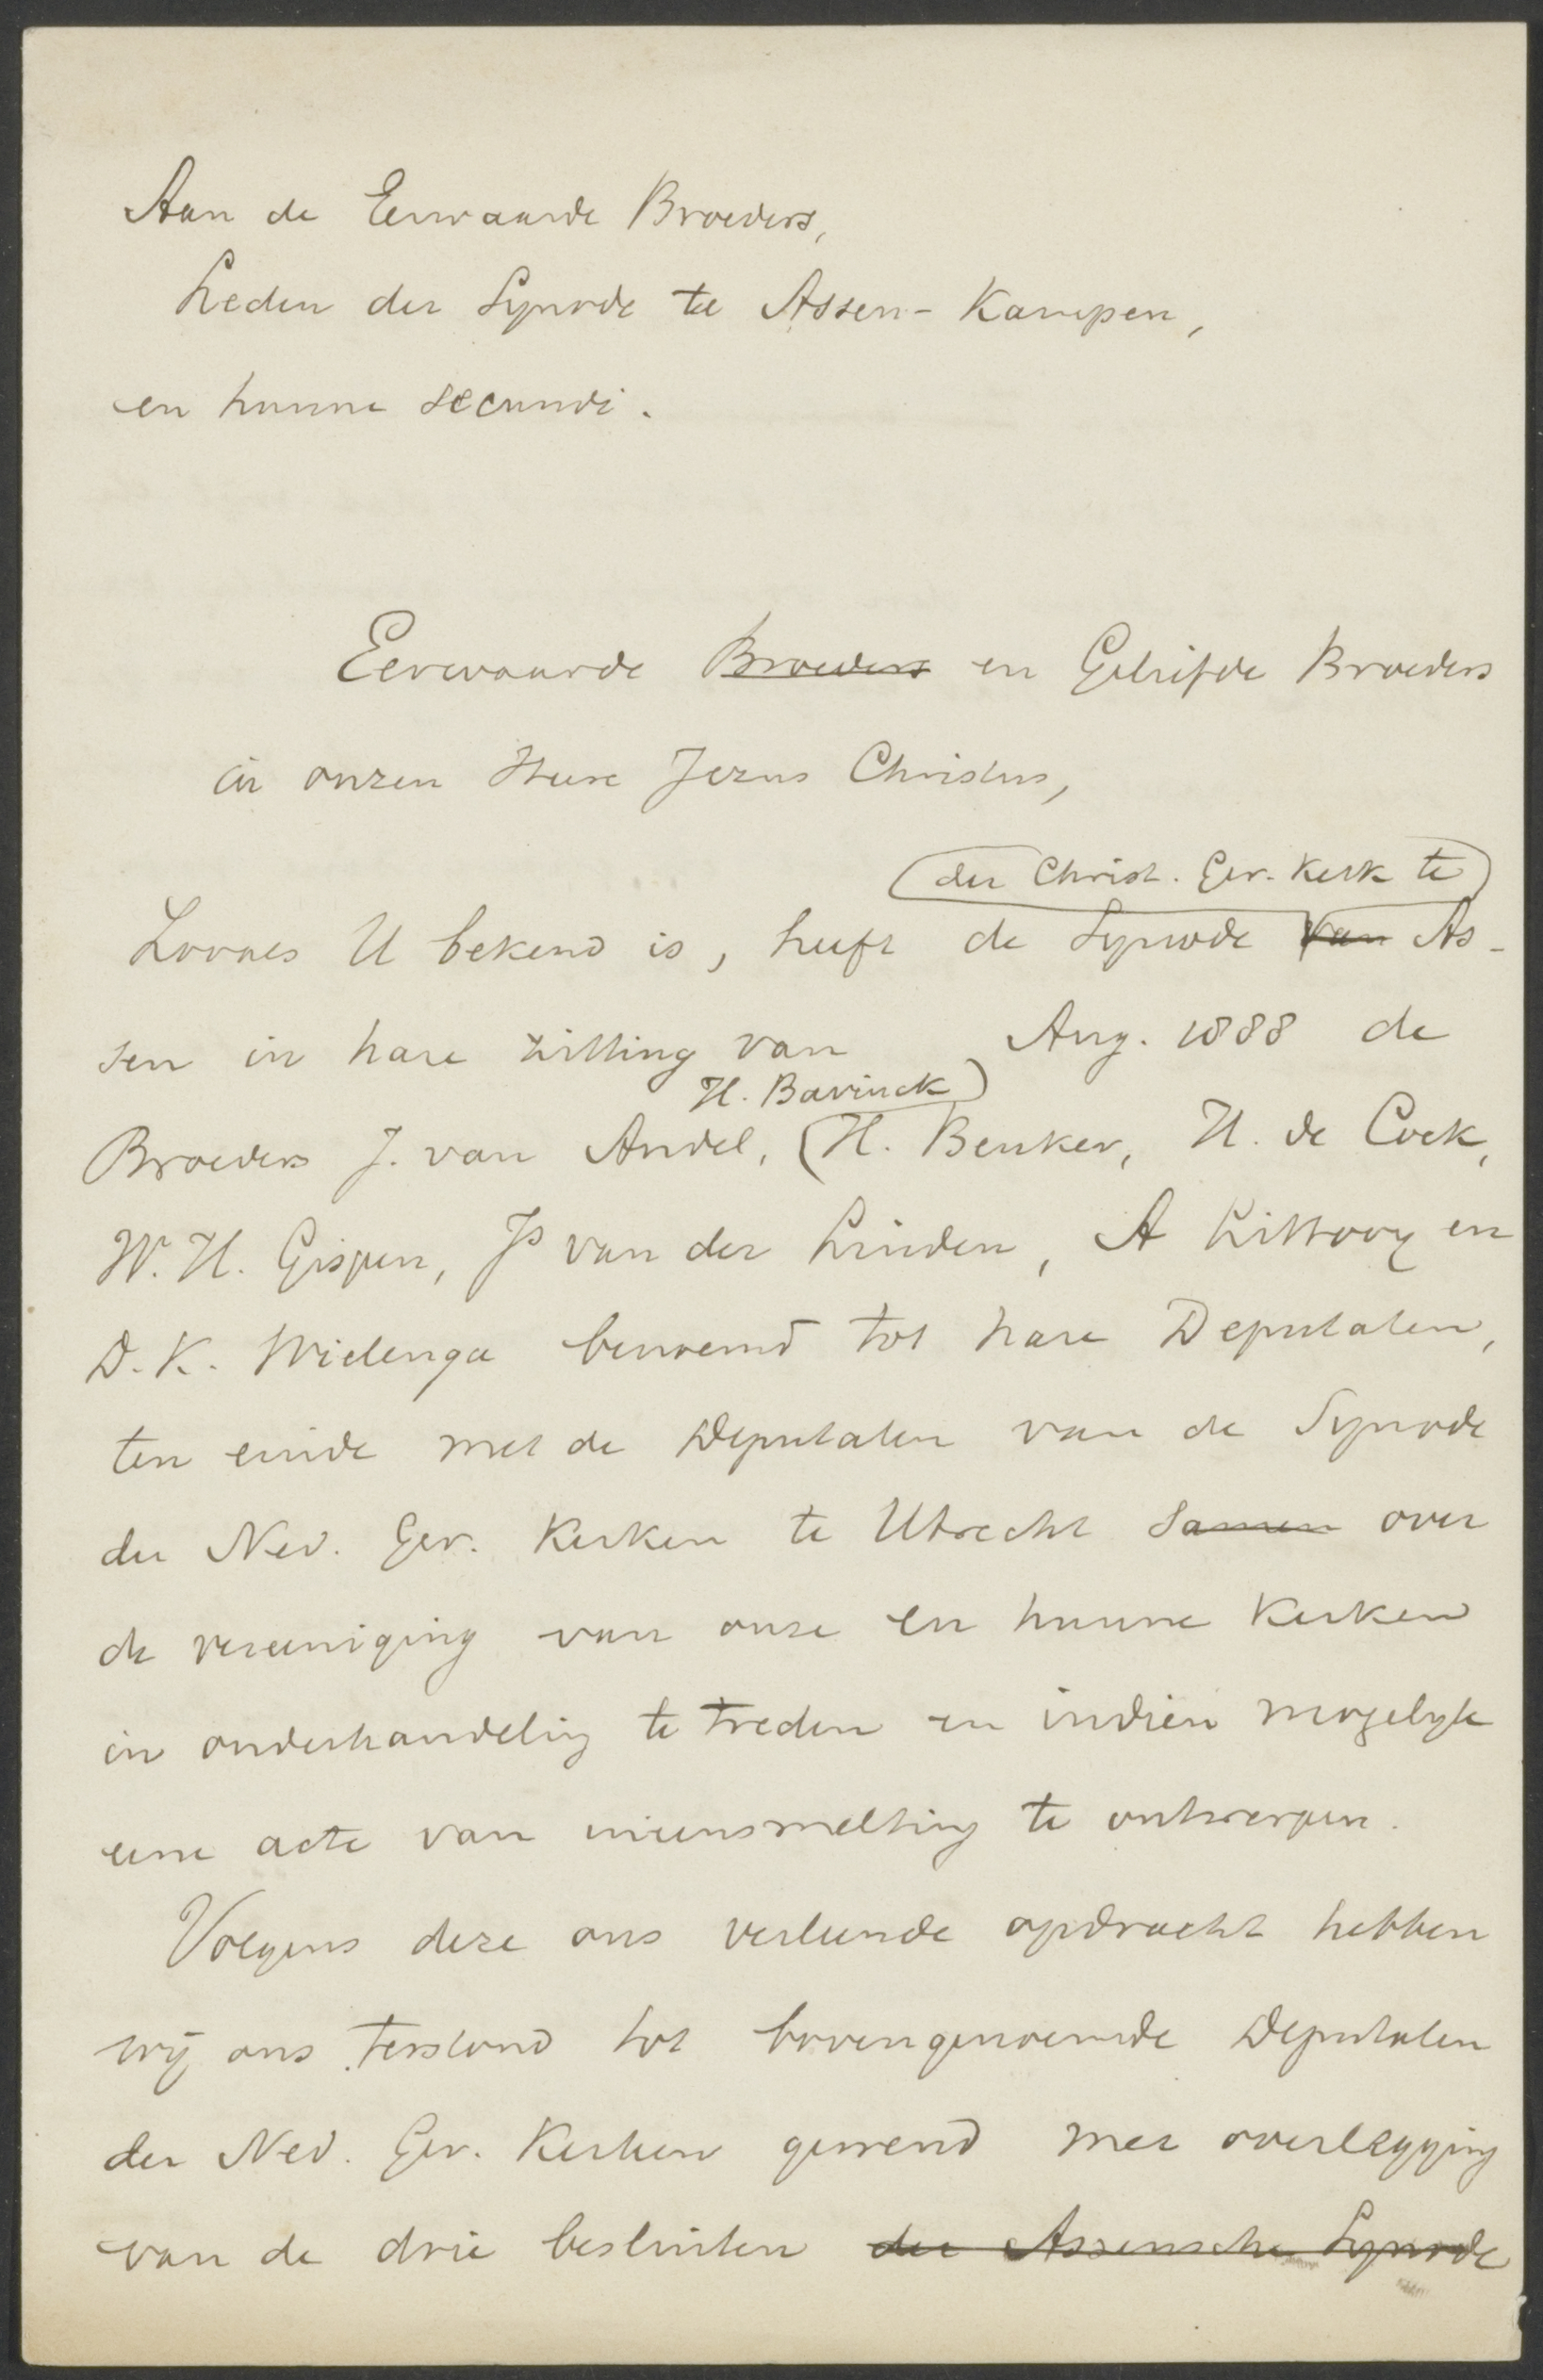 Aan de Eerwaarde Broeders,
Leden der Synode te Assen-Kampen,
en hunne secundi.
Eerwaarde Broeders en Geliefde Broeders
in onzen Heere Jezus Christus,
der Christ. Ger. Kerk te
Zooals U bekend is, heeft de Synode van As-
sen in hare zitting van Aug. 1888 de
H. Bavinck
Broeders J. van Andel, H. Beuker, H. de Cock,
W. H. Gispen, Js van der Linden, A Littooy en
D. K. Wielenga benoemd tot hare Deputaten,
ten einde met de Deputaten van de Synode
der Ned. Ger. Kerken te Utrecht samen over
de vereeniging van onze en hunne Kerken
in onderhandeling te treden en indien mogelyk
eene acte van ineensmelting te ontwerpen.
Volgens deze ons verleende opdracht hebben
wij ons terstond tot bovengenoemde Deputaten
der Ned. Ger. Kerken gewend met overlegging
van de drie besluiten der Assensche Synode